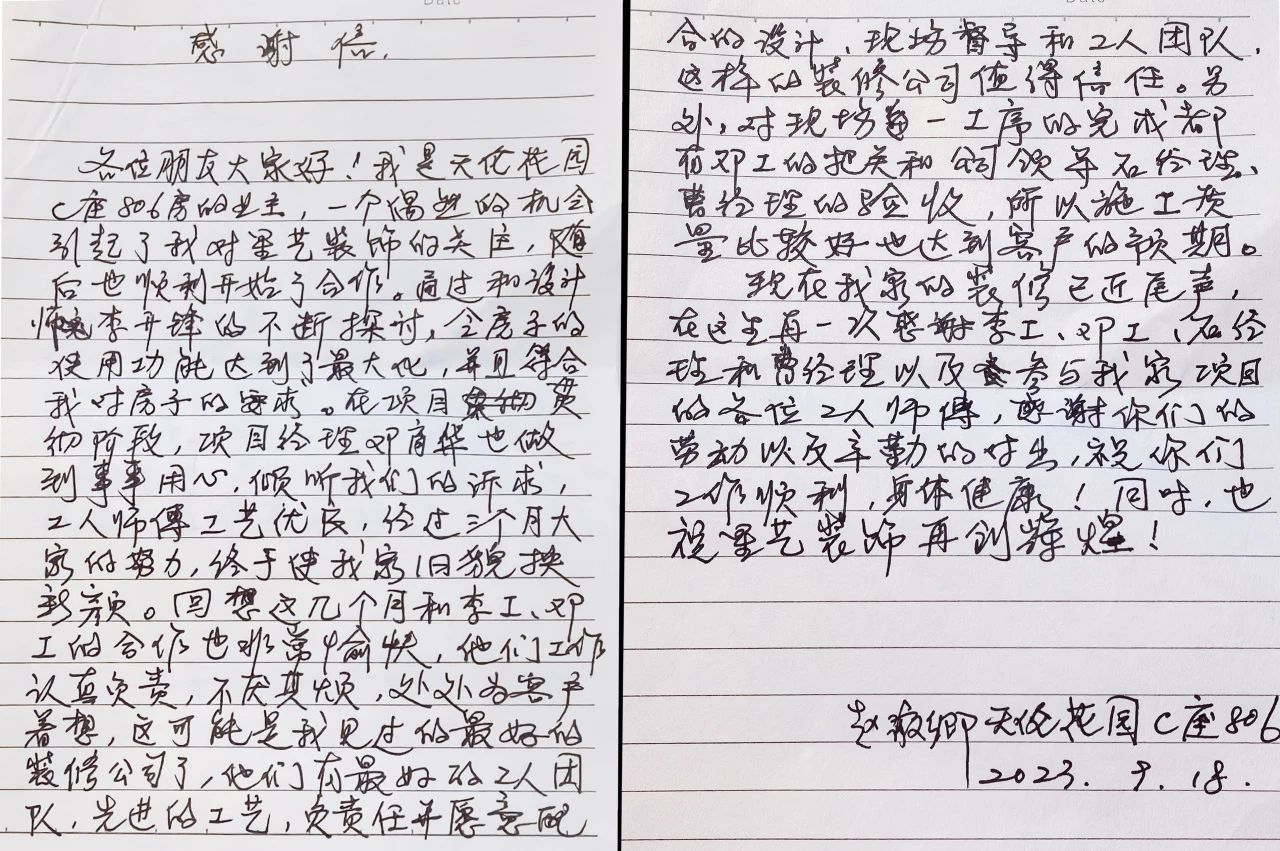 感谢信.
各位朋友大家好！我是天伦花园
C座806房的业主，一个偶然的机会
引起了我对星艺装饰的关注，随
后也顺利开始了合作。通过和设计
师李开锋的不断探讨，令房子的
使用功能达到了最大化，并且符合
我对房子的要求。在项目贯
彻阶段，项目经理邓育华也做
到事事用心，倾听我们的诉求，
工人师傅工艺优良，经过三个月大
家的努力，终于使我家旧貌换
新颜。回想这几个月和李工、邓
工的合作也非常愉快，他们工作
认真负责，不厌其烦，处处为客户
着想，这可能是我见过的最好的
装修公司了，他们有最好的工人团
队，先进的工艺，负责任并愿意配
合的设计、现场督导和工人团队，
这样的装修公司值得信任。另
外，对现场每一工序的完成都
有邓工的把关和公司领导石经理、
曹经理的验收，所以施工质
量比较好也达到客户的预期。
现在我家的装修已近尾声，
在这里再一次感谢李工、邓工、石经
理和曹经理以及参与我家项目
的各位工人师傅，感谢你们的
劳动以及辛勤的付出，祝你们
工作顺利，身体健康！同时，也
祝星艺装饰再创辉煌！
赵 卿 天伦花园C座806
2023. 9. 18.